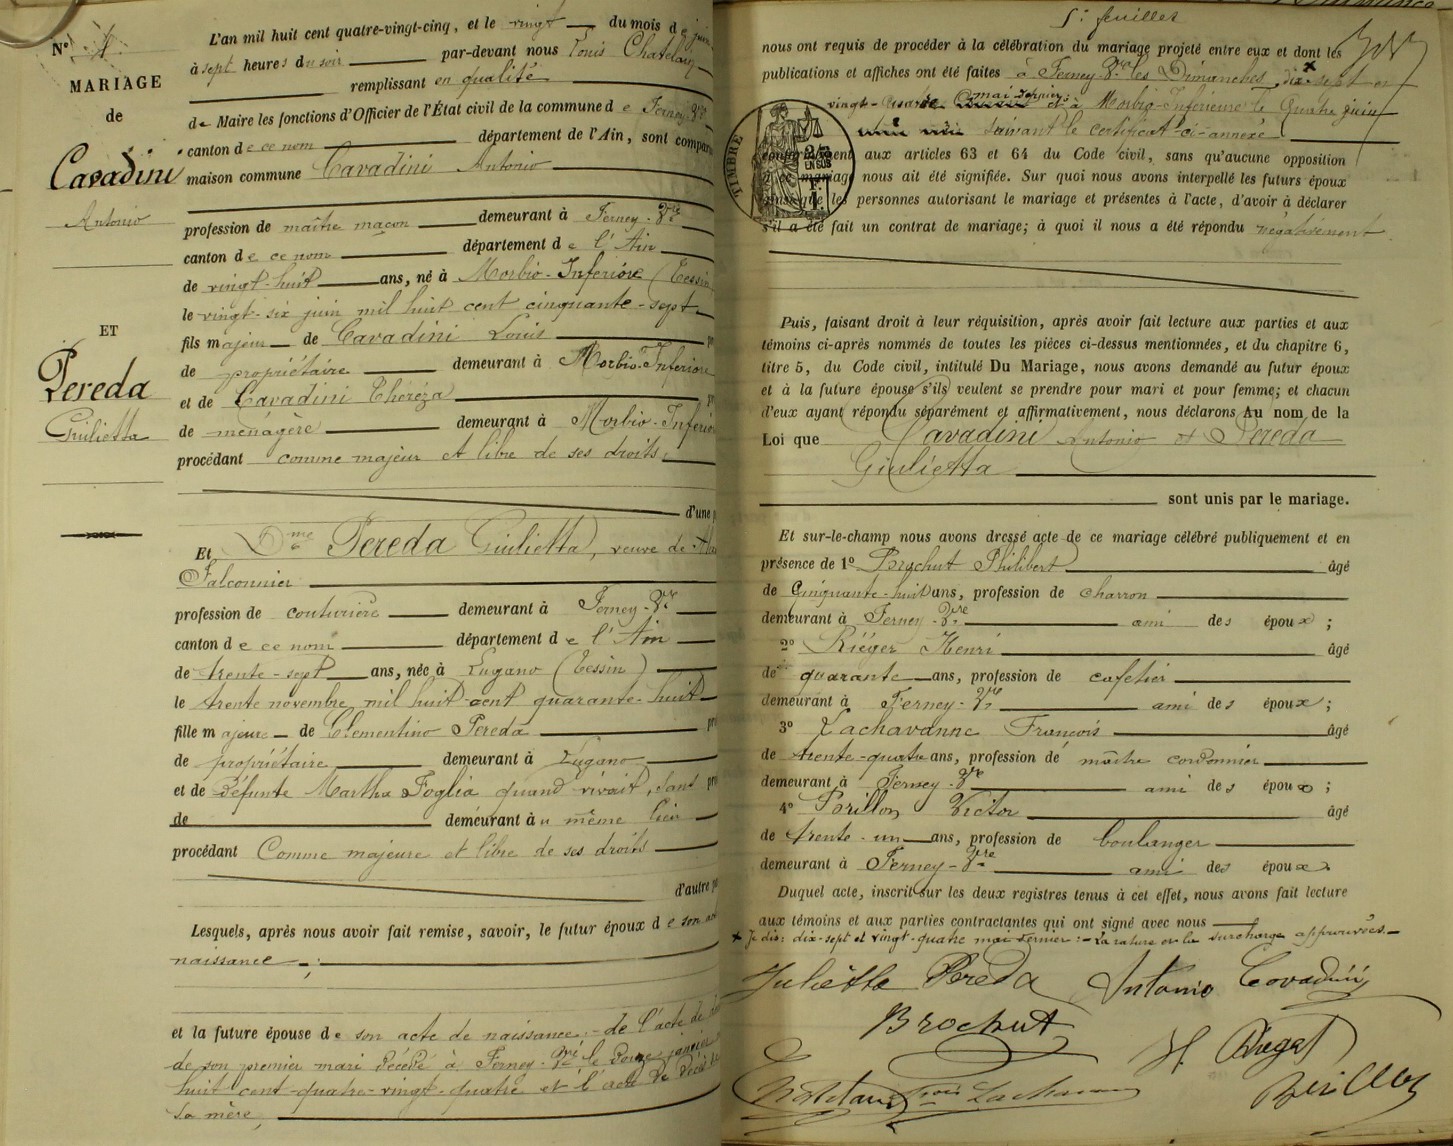 Nº 4
MARIAGE
de
Cavadini
Antonio
ET
Pereda
Giulietta
L'an mil huit cent quatre-vingt-cinq, et le vingt du mois de juin
à sept heures du soir par-devant nous Louis Chatelain
remplissant en qualité
de Maire les fonctions d'Officier de l'État civil de la commune de Ferney-Vre
canton de ce nom département de l'Ain, sont compar
maison commune Cavadini Antonio
profession de maître maçon demeurant à Ferney-Vre
canton de ce nom département de l'Ain
de vingt-huit ans, né à Morbio-Inferiore (Tessin
le vingt-six juin mil huit cent cinquante-sept
fils majeur de Cavadini Louis
de propriétaire demeurant à Morbio-Inferiore
et de Cavadini Théréza
de ménagère demeurant à Morbio-Inferio
procédant comme majeur et libre de ses droits,
d'une p
Et Dme Pereda Giulietta, veuve de
Falconnier
profession de couturière demeurant à Ferney-Vre
canton de ce nom département de l'Ain
de trente-sept ans, née à Lugano (Tessin)
le trente novembre mil huit-cent quarante-huit
fille majeure de Clementino Pereda
de propriétaire demeurant à Lugano
et de Défunte Martha Foglia quand vivait, sans pro
de demeurant au même lieu
procédant Comme majeure et libre de ses droits
d'autre pa
Lesquels, après nous avoir fait remise, savoir, le futur époux de son
naissance ;
et la future épouse de son acte de naissance :- de l'acte de
de son premier mari Décédé à Ferney-Vre le Douze janvier
huit cent-quatre-vingt-quatre et l'acte de Décès de
sa mère,
5e feuillet
nous ont requis de procéder à la célébration du mariage projeté entre eux et dont les
publications et affiches ont été faites à Ferney-Vre les Dimanches dix-sept et
mai dernier:
vingt-quatre et à Morbio-Inferiore le Quatre juin
suivant le certificat ci-annexé
conformément aux articles 63 et 64 du Code civil, sans qu'aucune opposition
à ce mariage nous ait été signifiée. Sur quoi nous avons interpellé les futurs époux
ainsi que les personnes autorisant le mariage et présentes à l'acte, d'avoir à déclarer
s'il a été fait un contrat de mariage; à quoi il nous a été répondu négativement
TIMBRE
Puis, faisant droit à leur réquisition, après avoir fait lecture aux parties et aux
témoins ci-après nommés de toutes les pièces ci-dessus mentionnées, et du chapitre 6,
titre 5, du Code civil, intitulé Du Mariage, nous avons demandé au futur époux
et à la future épouse s'ils veulent se prendre pour mari et pour femme; et chacun
d'eux ayant répondu séparément et affirmativement, nous déclarons Au nom de la
Loi que Cavadini Antonio et Pereda
Giulietta
sont unis par le mariage.
Et sur-le-champ nous avons dressé acte de ce mariage célébré publiquement et en
présence de 1º Brochut Philibert âgé
de Cinquante-huit ans, profession de charron
demeurant à Ferney-Vre ami des époux ;
2º Riéger Henri âgé
de quarante ans, profession de cafetier
demeurant à Ferney-Vre ami des époux ;
3º Lachavanne François âgé
de trente-quatre ans, profession de maître cordonnier
demeurant à Ferney-Vre ami des époux ;
4º Perillon Victor âgé
de trente-un ans, profession de boulanger
demeurant à Ferney-Vre ami des époux
Duquel acte, inscrit sur les deux registres tenus à cet effet, nous avons fait lecture
aux témoins et aux parties contractantes qui ont signé avec nous
x Je dis: dix-sept et vingt-quatre mai dernier :- La rature et la surcharge approuvées.
Juliette Pereda Antonio Covadini
Brochut